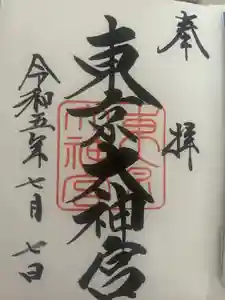 奉拝
東京大神宮
東京大神宮
令和五年七月七日